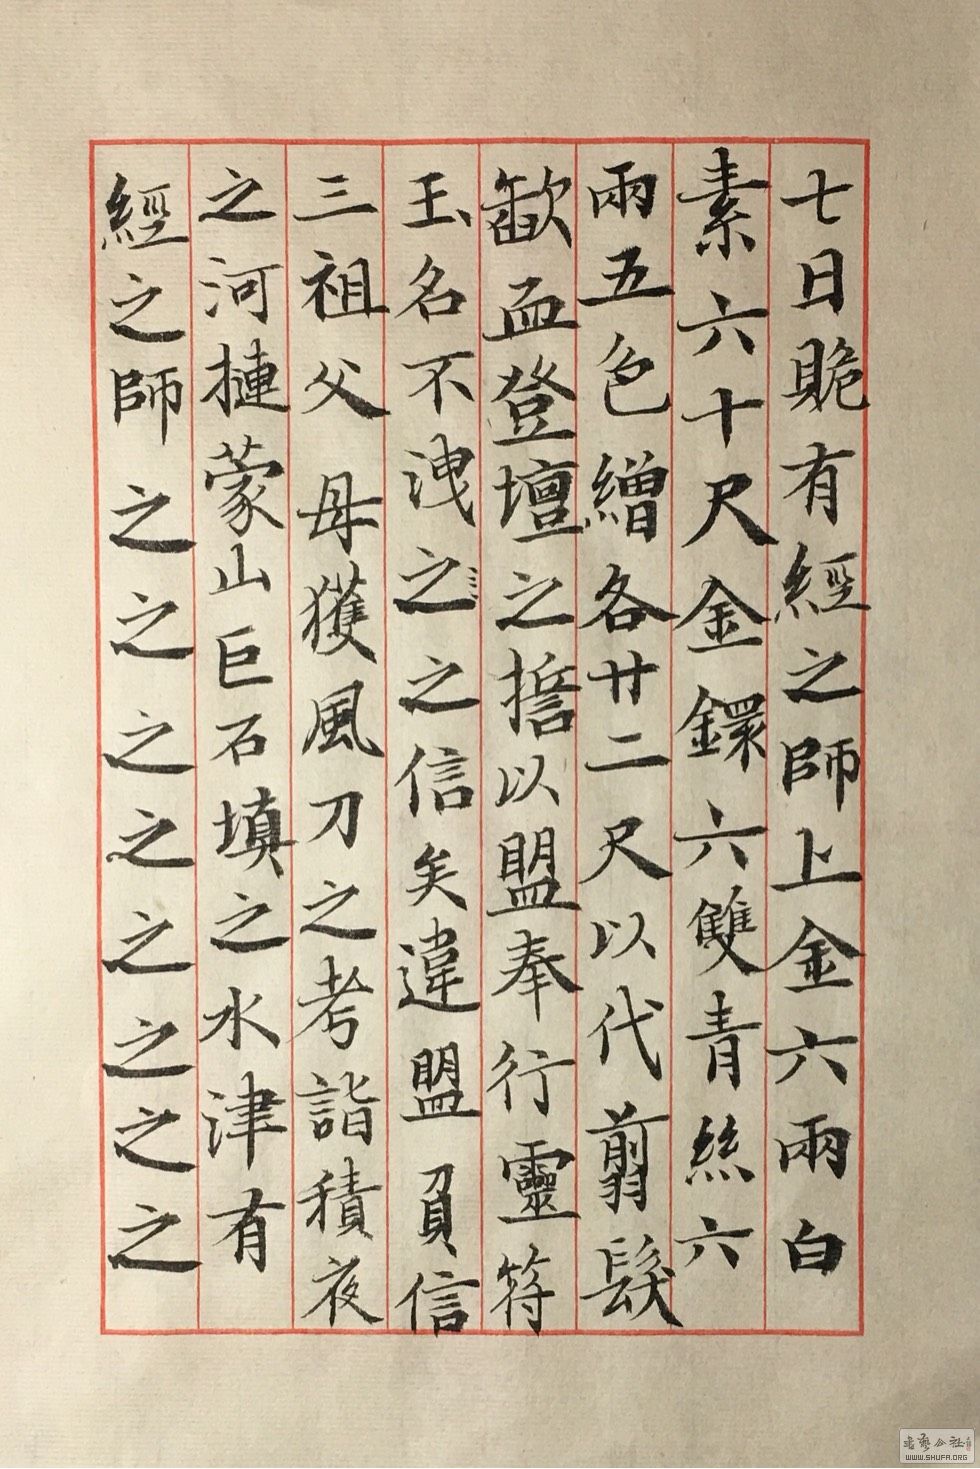 七日貹有經之師上金六兩白
素六十尺金鐶六雙青絲六
兩五色繒各廿二尺以代翦髮
歃血登壇之誓以盟奉行靈符
玉名不洩之之信矣違盟負信
三祖父母獲風刀之考詣積夜
之河摙蒙山巨石填之水津有
經之師之之之之之之之之
書藝公社
WWW.SHUFA.ORG